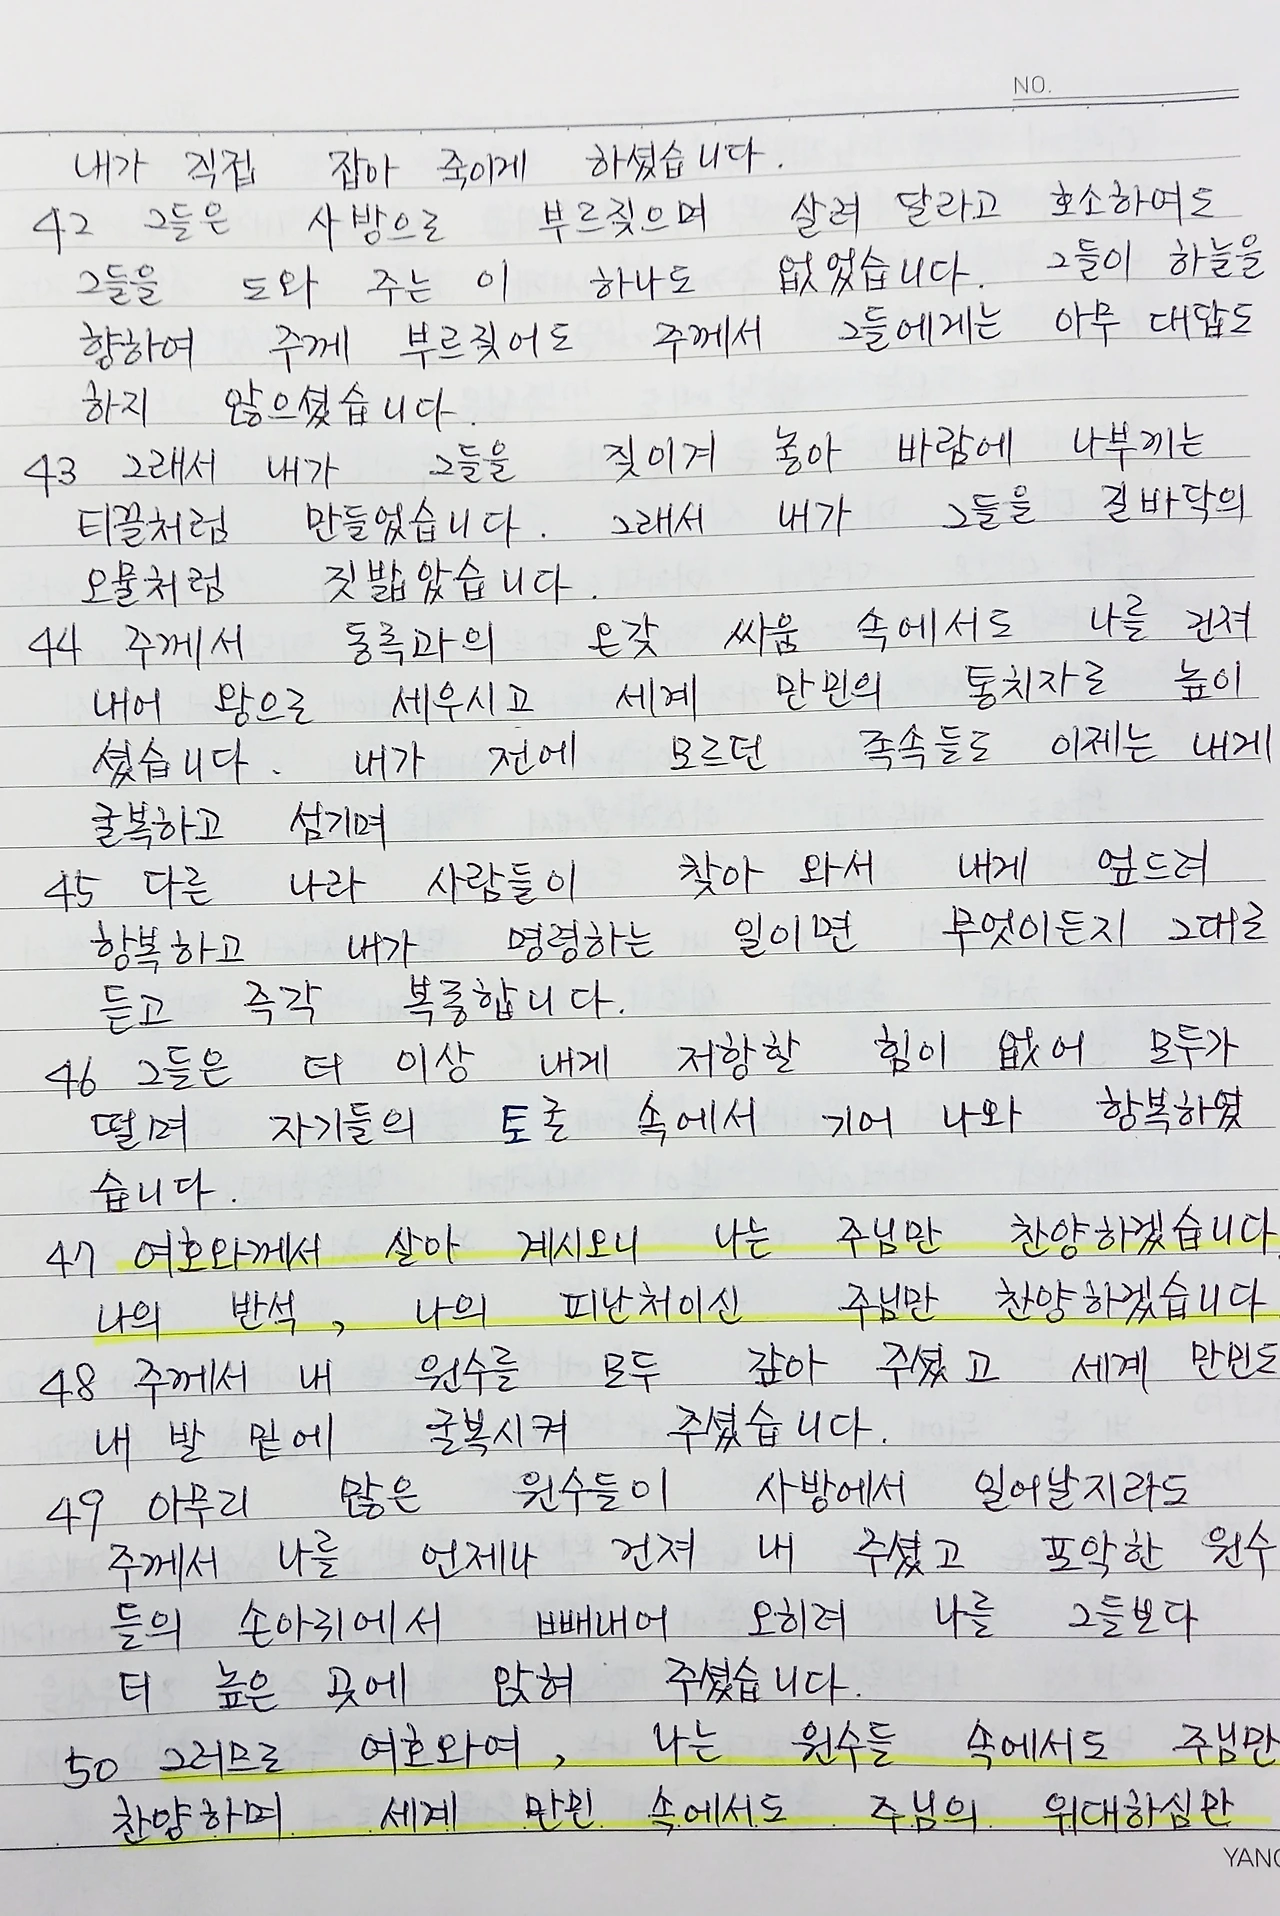 NO.
내가 직접 잡아 죽이게 하셨습니다.
42 그들은 사방으로 부르짖으며 살려 달라고 호소하여도
그들을 도와 주는 이 하나도 없었습니다. 그들이 하늘을
향하여 주께 부르짖어도 주께서 그들에게는 아무 대답도
하지 않으셨습니다.
43 그래서 내가 그들을 짖이겨 놓아 바람에 나부끼는
티끌처럼 만들었습니다. 그래서 내가 그들을 길바닥의
오물처럼 짓밟았습니다.
44 주께서 동족과의 온갖 싸움 속에서도 나를 건져
내어 왕으로 세우시고 세계 만민의 통치자로 높이
셨습니다. 내가 전에 모르던 족속들도 이제는 내게
굴복하고 섬기며
45 다른 나라 사람들이 찾아 와서 내게 엎드려
항복하고 내가 명령하는 일이면 무엇이든지 그대로
듣고 즉각 복종합니다.
46 그들은 더 이상 내게 저항할 힘이 없어 모두가
떨며 자기들의 토굴 속에서 기어 나와 항복하였
습니다.
47 여호와께서 살아 계시오니 나는 주님만 찬양하겠습니다.
나의 반석, 나의 피난처이신 주님만 찬양하겠습니다
48 주께서 내 원수를 모두 갚아 주셨고 세계 만민도
내 발 밑에 굴복시켜 주셨습니다.
49 아무리 많은 원수들이 사방에서 일어날지라도
주께서 나를 언제나 건져 내 주셨고 포악한 원수
들의 손아귀에서 빼내어 오히려 나를 그들보다
더 높은 곳에 앉혀 주셨습니다.
50 그러므로 여호와여, 나는 원수들 속에서도 주님만
찬양하며 세계 만민 속에서도 주님의 위대하심만